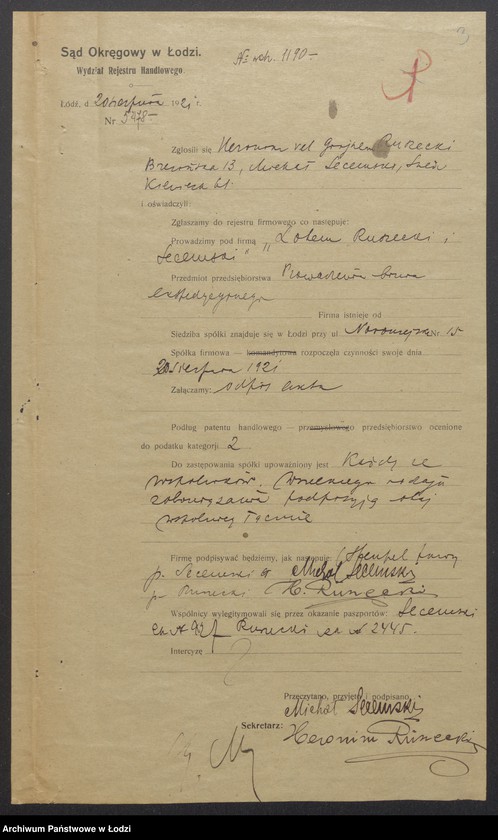 Sąd Okręgowy w Łodzi.
Wydział Rejestru Handlowego.
1190 —
Łódź, d. 20 sierpnia 1921 r.
Nr. 5478 —
Zgłosili się Heronim vel Ruzecki
13, Michał Secemski,
i oświadczyli:
Zgłaszamy do rejestru firmowego co następuje:
Prowadzimy pod firmą „ Ruzecki i
Secemski"
Przedmiot przedsiębiorstwa Prowadzenie biura
ekspedycyjnego
Firma istnieje od
Siedziba spółki znajduje się w Łodzi przy ul. Nr. 15
Spółka firmowa — komandytowa rozpoczęła czynności swoje dnia
20 sierpnia 1921
Załączamy: odpis aktu
Podług patentu handlowego — przemysłowego przedsiębiorstwo ocenione
do podatku kategorji 2
Do zastępowania spółki upoważniony jest Każdy ze
wspólników. Wszelkiego rodzaju
zobowiązania podpisują obaj
wspólnicy łącznie
Firmę podpisywać będziemy, jak następuje: (Stempel firmy
p. Secemski Michał Secemski
p. Ruzecki H. Runecki
Wspólnicy wylegitymowali się przez okazanie paszportów: Secemski
Ruzecki 2445.
Intercyzę
Przeczytano, przyjęto i podpisano.
Michał Secemski
Sekretarz: Heronim Runecki
Archiwum Państwowe w Łodzi